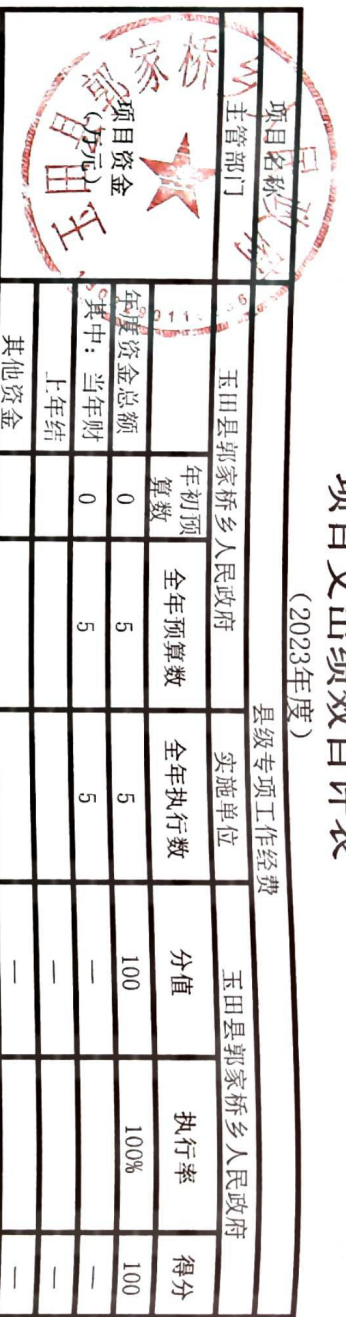 项目支出绩效自评表
(2023年度)
项目名称 县级专项工作经费
主管部门 玉田县郭家桥乡人民政府 实施单位 玉田县郭家桥乡人民政府
项目资金(万元) 年初预算数 全年预算数 全年执行数 分值 执行率 得分
年度资金总额 0 5 5 100 100% 100
其中：当年财 0 5 5 — —
上年结 — —
其他资金 — —
玉田县郭家桥乡人民政府